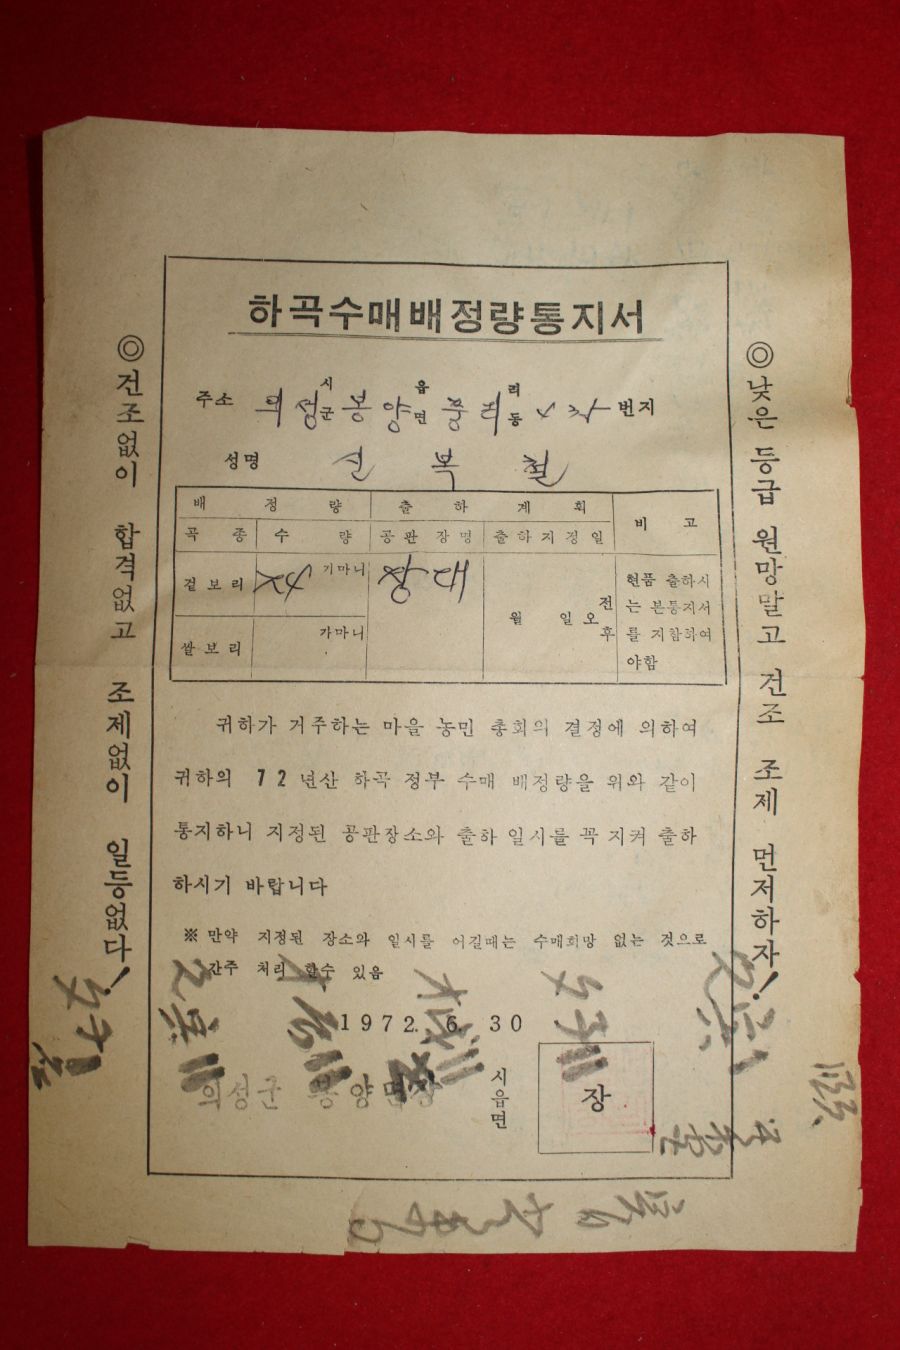 하곡수매배정량통지서
주소 의성 시군 봉양 읍면 풍리 리동 번지
성명 신복철
배정량 출하계획 비고
곡종 수량 공판장명 출하지정일
겉보리 가마니 장대 월 일 오 전후
쌀보리 가마니
현품 출하시
는 본통지서
를 지참하여
야함
귀하가 거주하는 마을 농민 총회의 결정에 의하여
귀하의 72년산 하곡 정부 수매 배정량을 위와 같이
통지하니 지정된 공판장소와 출하 일시를 꼭 지켜 출하
하시기 바랍니다
※ 만약 지정된 장소와 일시를 어길때는 수매희망 없는 것으로
간주 처리 할수 있음
1972. 6. 30
의성군 봉양면장
시읍면 장
◎건조없이 합격없고 조제없이 일등없다!
◎낮은 등급 원망말고 건조 조제 먼저하자!